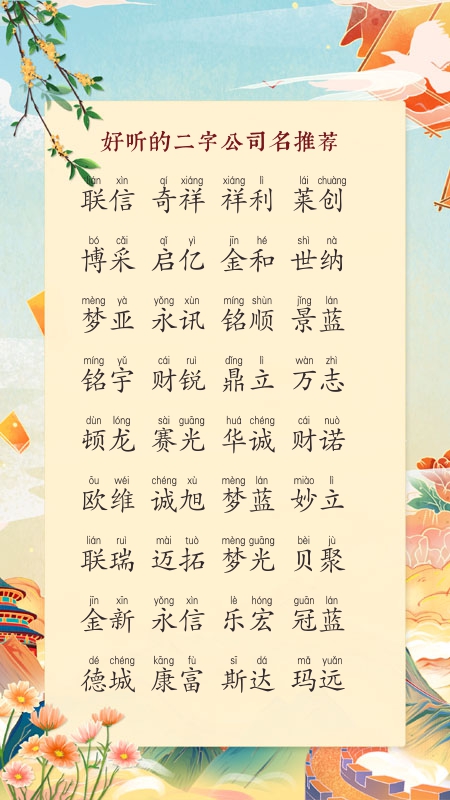 好听的二字公司名推荐
lián xìn qí xiáng xiáng lì lái chuàng
联信 奇祥 祥利 莱创
bó cǎi qǐ yì jīn hé shì nà
博采 启亿 金和 世纳
mèng yà yǒng xùn míng shùn jǐng lán
梦亚 永讯 铭顺 景蓝
míng yǔ cái ruì dǐng lì wàn zhì
铭宇 财锐 鼎立 万志
dùn lóng sài guāng huá chéng cái nuò
顿龙 赛光 华诚 财诺
ōu wéi chéng xù mèng lán miào lì
欧维 诚旭 梦蓝 妙立
lián ruì mài tuò mèng guāng bèi jù
联瑞 迈拓 梦光 贝聚
jīn xīn yǒng xìn lè hóng guān lán
金新 永信 乐宏 冠蓝
dé chéng kāng fù sī dá mǎ yuǎn
德城 康富 斯达 玛远